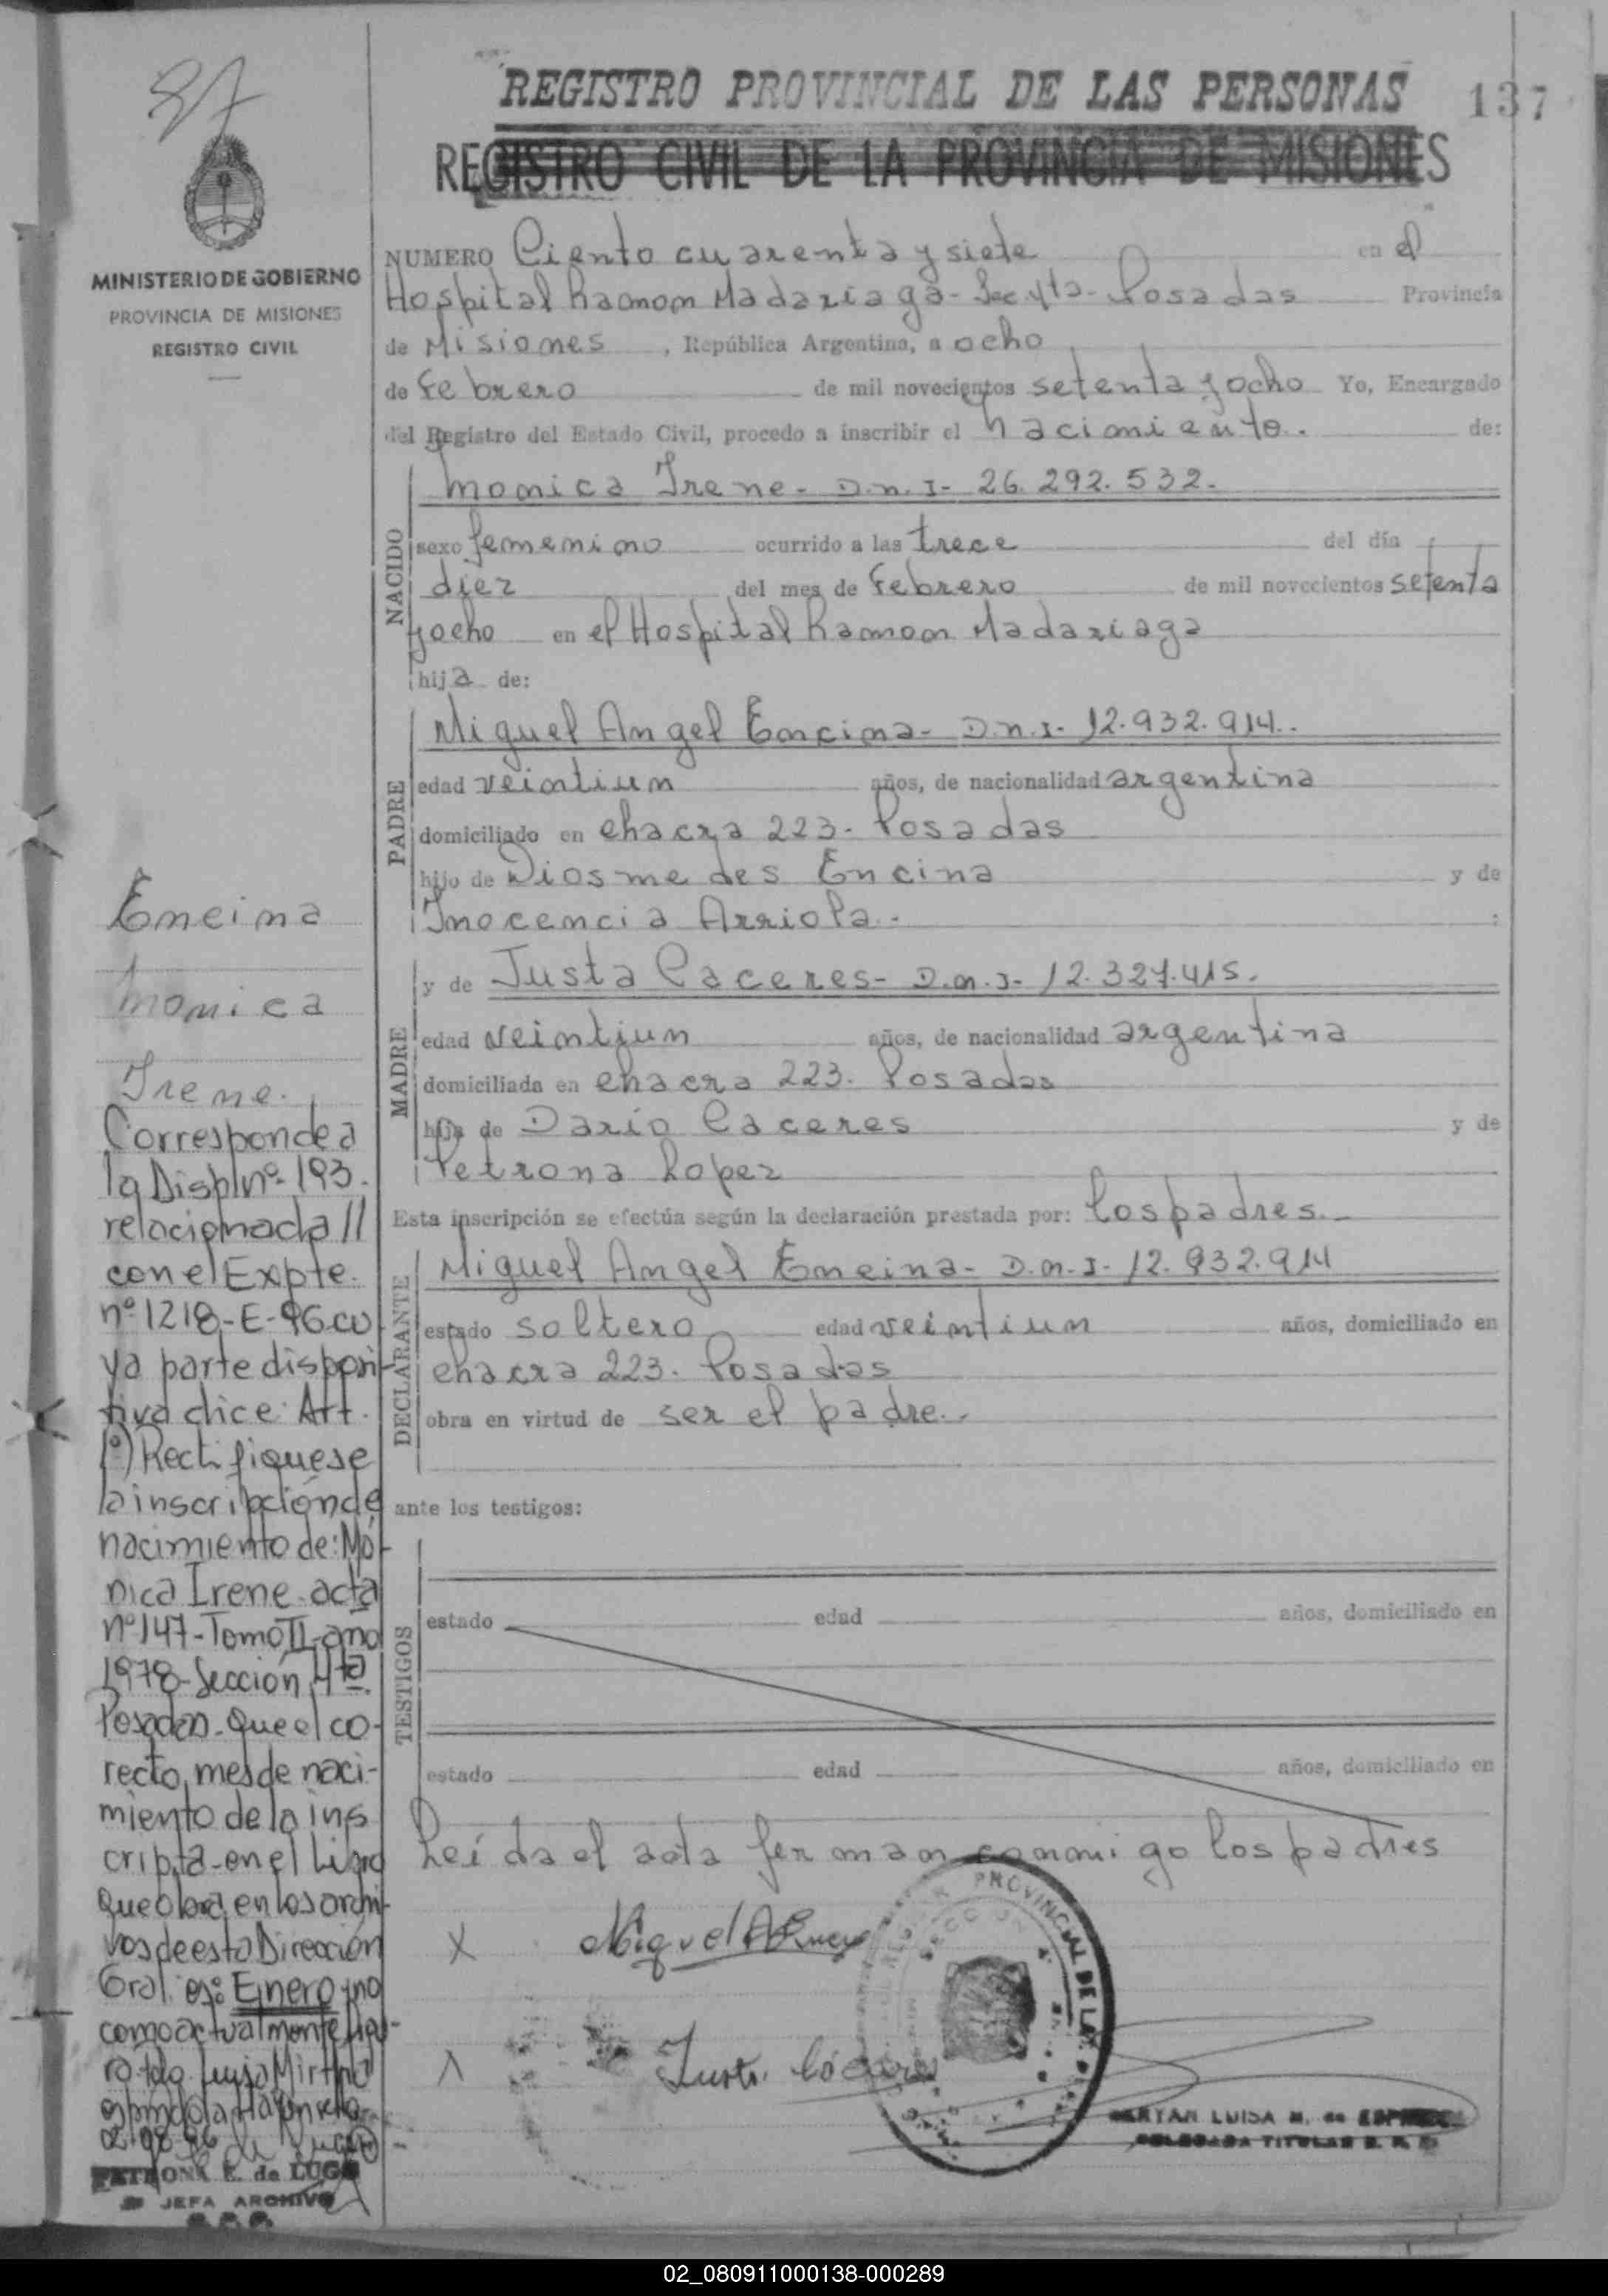 87
REGISTRO PROVINCIAL DE LAS PERSONAS
137
REGISTRO CIVIL DE LA PROVINCIA DE MISIONES
MINISTERIO DE GOBIERNO
PROVINCIA DE MISIONES
REGISTRO CIVIL
NUMERO Ciento cuarenta y siete en el
Hospital Ramon Madariaga - Sec 4ta - Posadas Provincia
de Misiones, República Argentina, a ocho
de Febrero de mil novecientos setenta y ocho Yo, Encargado
del Registro del Estado Civil, procedo a inscribir el nacimiento. de:
NACIDO
Monica Irene - D.n.I - 26.292.532.
sexo femenino ocurrido a las trece del día
diez del mes de Febrero de mil novecientos setenta
y ocho en el Hospital Ramon Madariaga
hija de:
PADRE
Miguel Angel Encina - D.n.I - 12.932.914.
edad veintiun años, de nacionalidad argentina
domiciliado en chacra 223. Posadas
hijo de Diosmedes Encina y de
Inocencia Arriola.
MADRE
y de Justa Caceres - D.n.I - 12.327.415.
edad veintiun años, de nacionalidad argentina
domiciliada en chacra 223. Posadas
hija de Darío Caceres y de
Petrona Lopez
Esta inscripción se efectúa según la declaración prestada por: los padres.
DECLARANTE
Miguel Angel Encina - D.n.I - 12.932.914
estado soltero edad veintiun años, domiciliado en
chacra 223. Posadas
obra en virtud de ser el padre.
ante los testigos:
TESTIGOS
estado edad años, domiciliado en
estado edad años, domiciliado en
Leída el acta firman conmigo los padres
X Miguel A
Justa Cáceres
PROVINCIAL DE LA
LUISA M. de
DELEGADA TITULAR
Encina
Monica
Irene.
Corresponde a
la Disp nº 193.
relacionada //
con el Expte.
nº 1218-E-96 cu
ya parte disposi-
tiva dice: Art.
1º) Rectifiquese
la inscripción de
nacimiento de: Mó-
nica Irene - acta
nº 147 - Tomo II - año
1978 - Sección 4ta.
Posadas - Que el co-
recto, mes de naci-
miento de la ins
cripta - en el Libro
que obra en los archi-
vos de esta Dirección
Gral. es: Enero y no
como actualmente figu-
ra. Fdo. Luisa Mirtha
PETRONA E. de LUGO
JEFA ARCHIVO
02_080911000138-000289